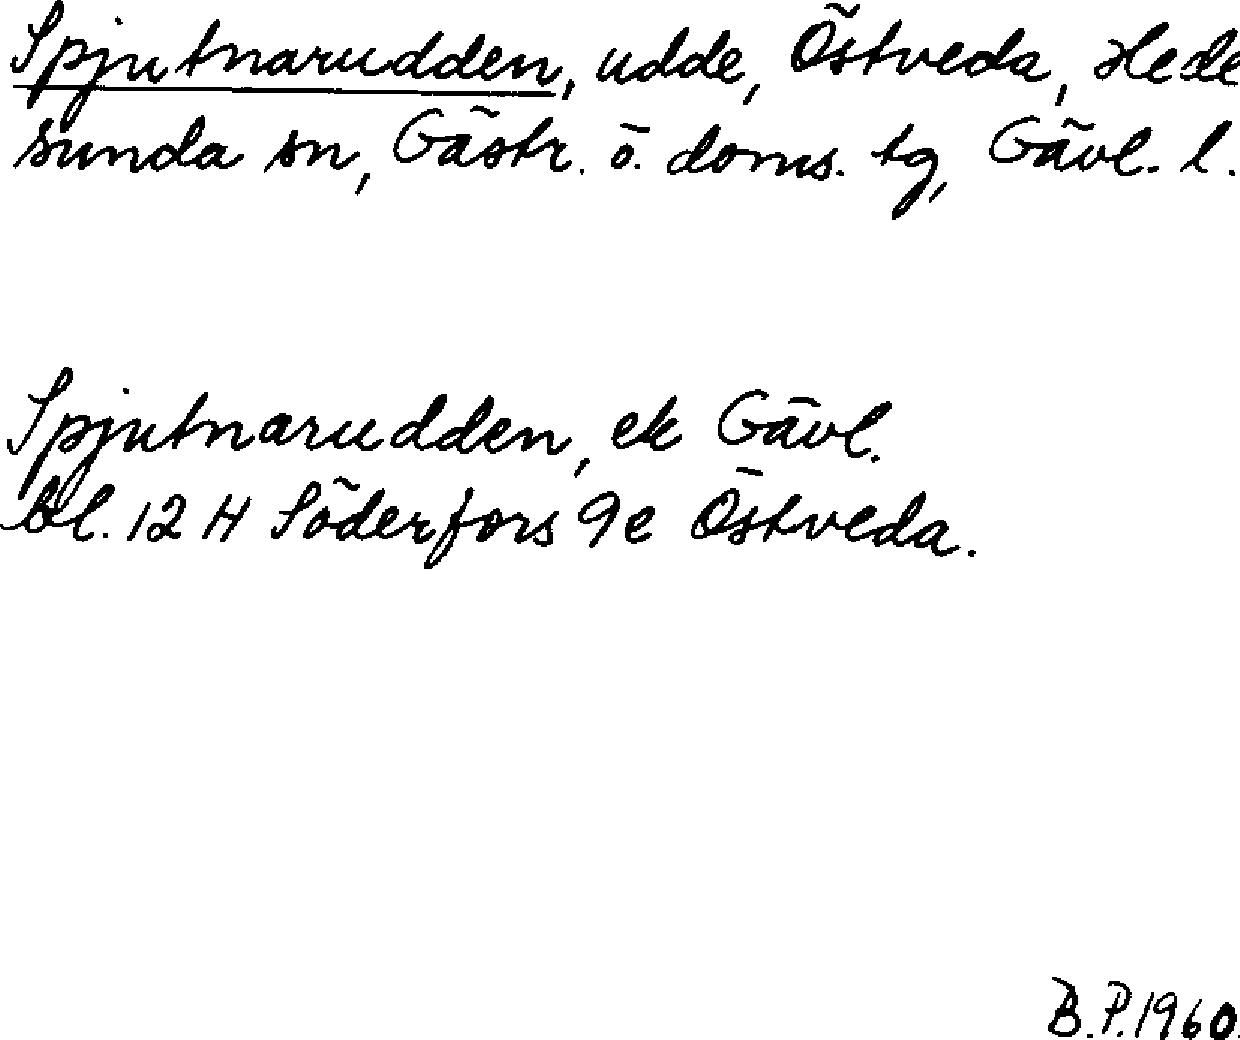 Spjutnarudden, udde, Östveda, Hede
sunda sn, Gästr. ö. doms. tg, Gävl. l.
Spjutnarudden, ek Gävl.
bl. 12 H Söderfors 9e Östveda.
B.P. 1960.